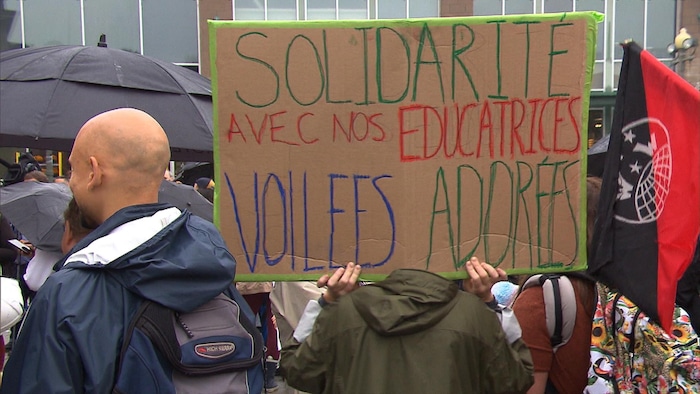 SOLIDARITÉ
AVEC NOS EDUCATRICES
VOILEES ADORÉES
HIGH SIERRA
IWW